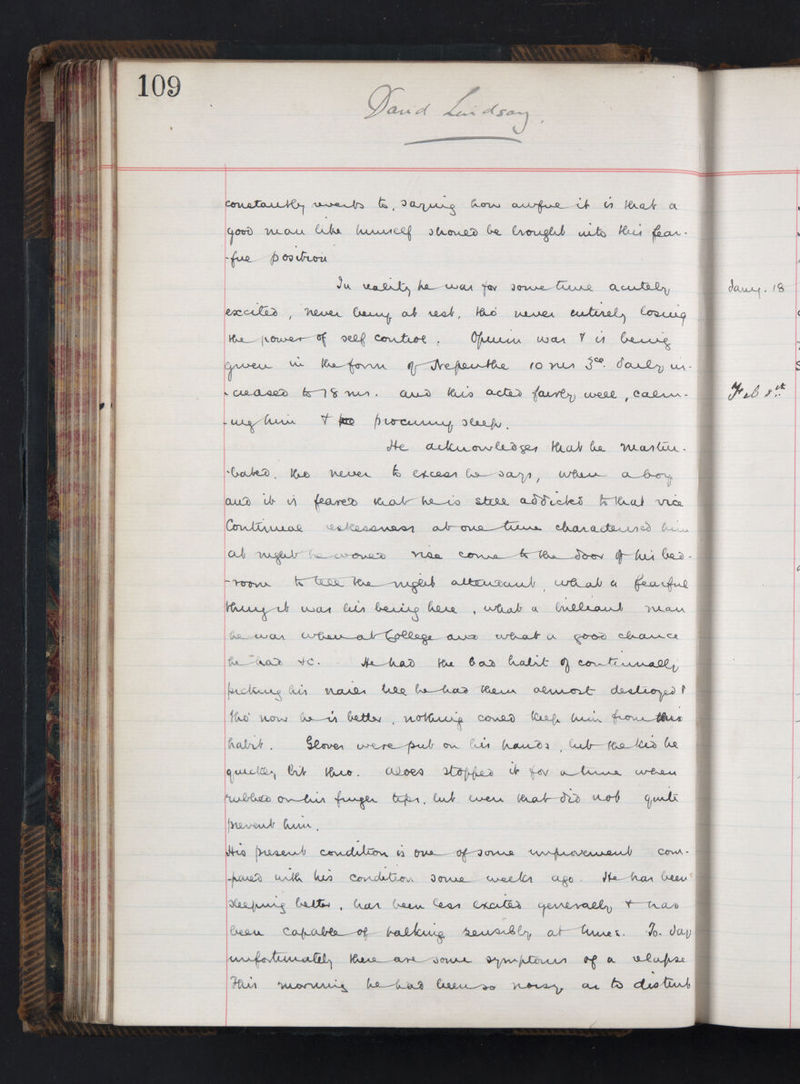 109
David Lindsay.
constantly reverts to, saying how awful it is that a
good man like himself should be brought into this fear-
-ful position
In reality he was for some time acutely
Jany. 18
excited, never being at rest, tho' never entirely losing
the power of self control. Opium was & is being
given in the form of Nepenthe 10 ms 3ce. daily in-
-creased to 18 ms. and this acted fairly well, calm-
Feb 1st
-ing him & procuring sleep.
He acknowledges that he mastur-
-bated, tho never to excess he says, when a boy
and it is feared that he is still addicted to that vice
Continual restlessness at one time characterised him
at night he would rise come to the door of his bed-
-room to tell the night attendant, what a fearful
thing it was his being here, what a brilliant man
he was when at College and what a good chance
he had &c. He had the bad habit of continually
picking his nails till he had them almost destroyed &
tho' now he is better, nothing could keep him from this
habit. Gloves were put on his hands, but the kid he
quickly bit thro. Aloes stopped it for a time when
rubbed on his finger tips, but even that did not quite
prevent him.
His present condition is one of some improvement com-
-pared with his condition some weeks ago. He has been
sleeping better, has been less excited generally & has
been capable of talking sensibly at times. To. day
unfortunately there are some symptoms of a relapse
This morning he had been so noisy as to disturb